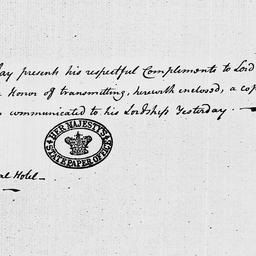 ay presents his respectful Complements to Lord
Honor of transmitting, herewith enclosed, a cop
communicated to his Lordships Yesterday. —
HER MAJESTY'S
STATE PAPER OFFICE
al Hotel —